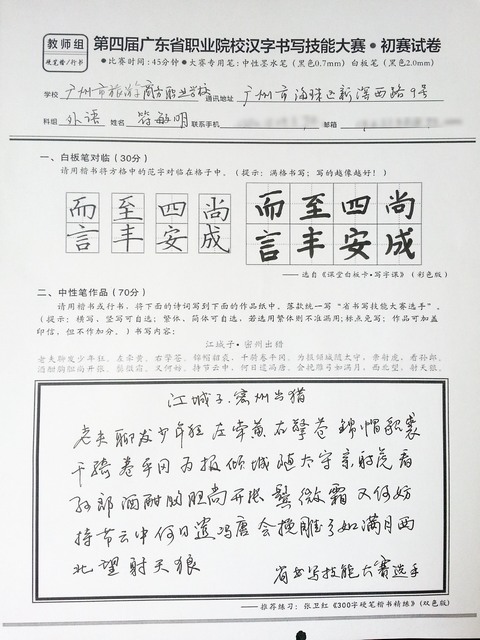 教师组
硬笔楷/行书
第四届广东省职业院校汉字书写技能大赛·初赛试卷
●比赛时间:45分钟●大赛专用笔:中性墨水笔(黑色0.7mm)白板笔(黑色2.0mm)
学校 广州市旅游商务职业学校 通讯地址 广州市海珠区新滘西路9号
科组 外语 姓名 符敏明 联系手机 邮箱
一、白板笔对临(30分)
请用楷书将方格中的范字对临在格子中。(提示:满格书写;写的越像越好!)
而 至 四 尚 而 至 四 尚
言 丰 安 成 言 丰 安 成
——选自《课堂白板卡·写字课》(彩色版)
二、中性笔作品(70分)
请用楷书或行书,将下面的诗词写到下面的作品纸中。落款统一写“省书写技能大赛选手”。
(提示:横写、竖写可自选;繁体、简体可自选,若选用繁体则不准漏用;标点免写;作品可加盖
印信,但不作加分。)书写内容:
江城子·密州出猎
老夫聊发少年狂,左牵黄,右擎苍,锦帽貂裘,千骑卷平冈。为报倾城随太守,亲射虎,看孙郎。
酒酣胸胆尚开张,鬓微霜,又何妨。持节云中,何日遣冯唐。会挽雕弓如满月,西北望,射天狼。
江城子.密州出猎
老夫聊发少年狂 左牵黄 右擎苍 锦帽貂裘
千骑卷平冈 为报倾城随太守 亲射虎 看
孙郎 酒酣胸胆尚开张 鬓微霜 又何妨
持节云中 何日遣冯唐 会挽雕弓如满月 西
北望 射天狼 省书写技能大赛选手
——推荐练习:张卫红《300字硬笔楷书精练》(双色版)